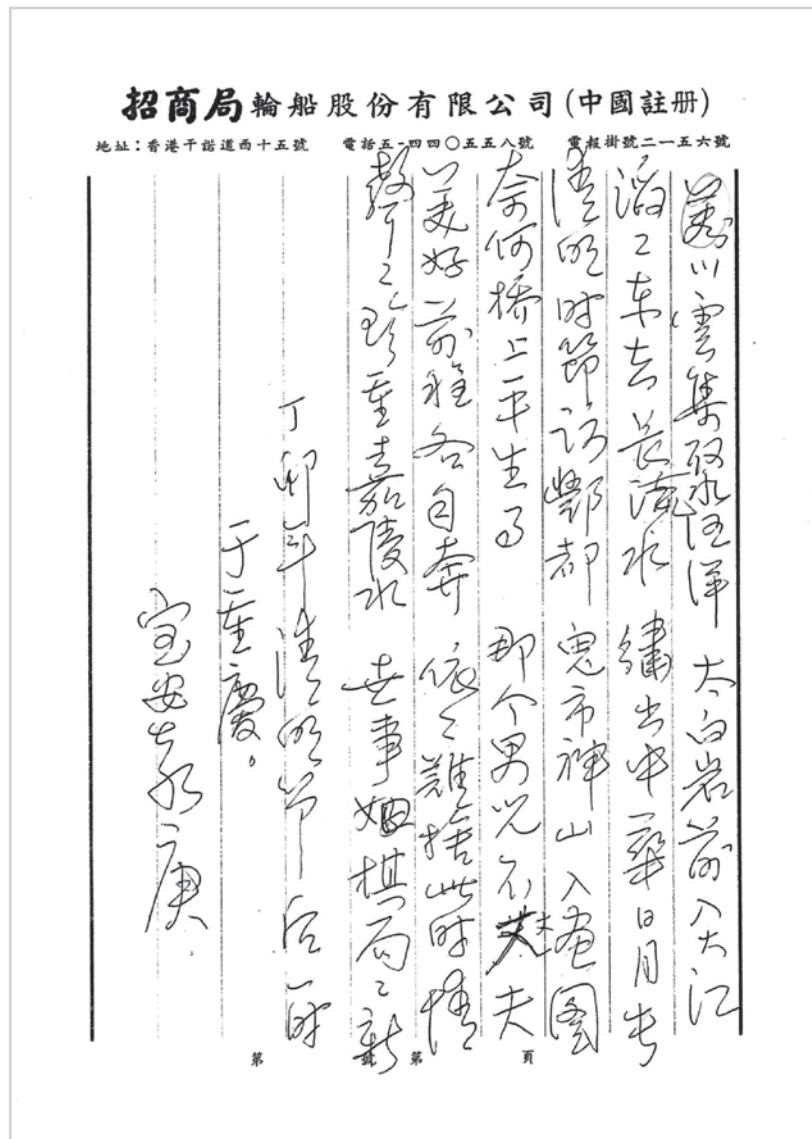 招商局輪船股份有限公司(中國註册)
地址:香港干諾道西十五號 電話五-四四〇五五八號 電報掛號二一五六號
萬川雲集聚汪洋 太白岩前入大江
滔〻东去长流水 繡出中華日月长
清明时節访酆都 鬼市神山入畫图
奈何橋上平生了 那个男児不丈夫
美好前程各自奔 依〻難捨此时情
聲〻珍重嘉陵水 世事如棋局〻新
丁卯年清明节后一时
于重慶。
宝安
第 號 第 頁